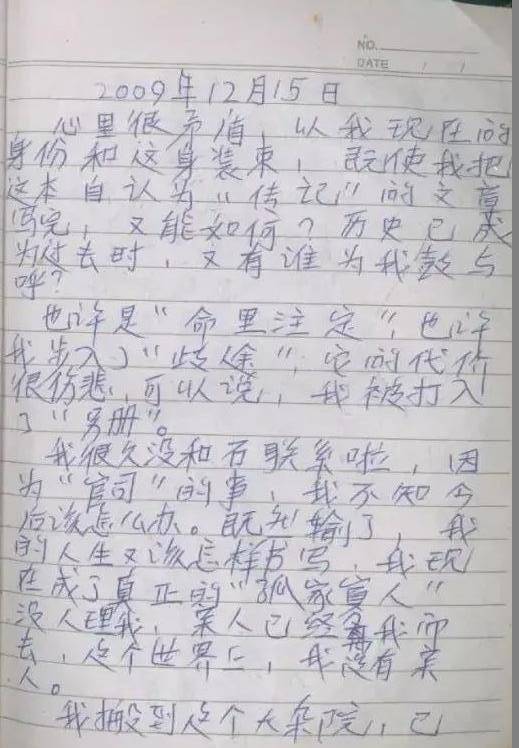 NO.
DATE / /
2009年12月15日
心里很矛盾，以我现在的
身份和这身装束，既使我把
这本自认为"传记"的文章
写完，又能如何？历史已成
为过去时，又有谁为我鼓与
呼？
也许是"命里注定"，也许
我步入了"歧途"，它的代价
很伤悲，可以说，我被打入
了"另册"。
我很久没和石联系啦，因
为"官司"的事，我不知今
后该怎么办。既然输了，我
的人生又该怎样书写，我现
在成了真正的"孤家寡人"
没人理我，亲人已经离我而
去，这个世界上，我没有亲
人。
我搬到这个大杂院，已